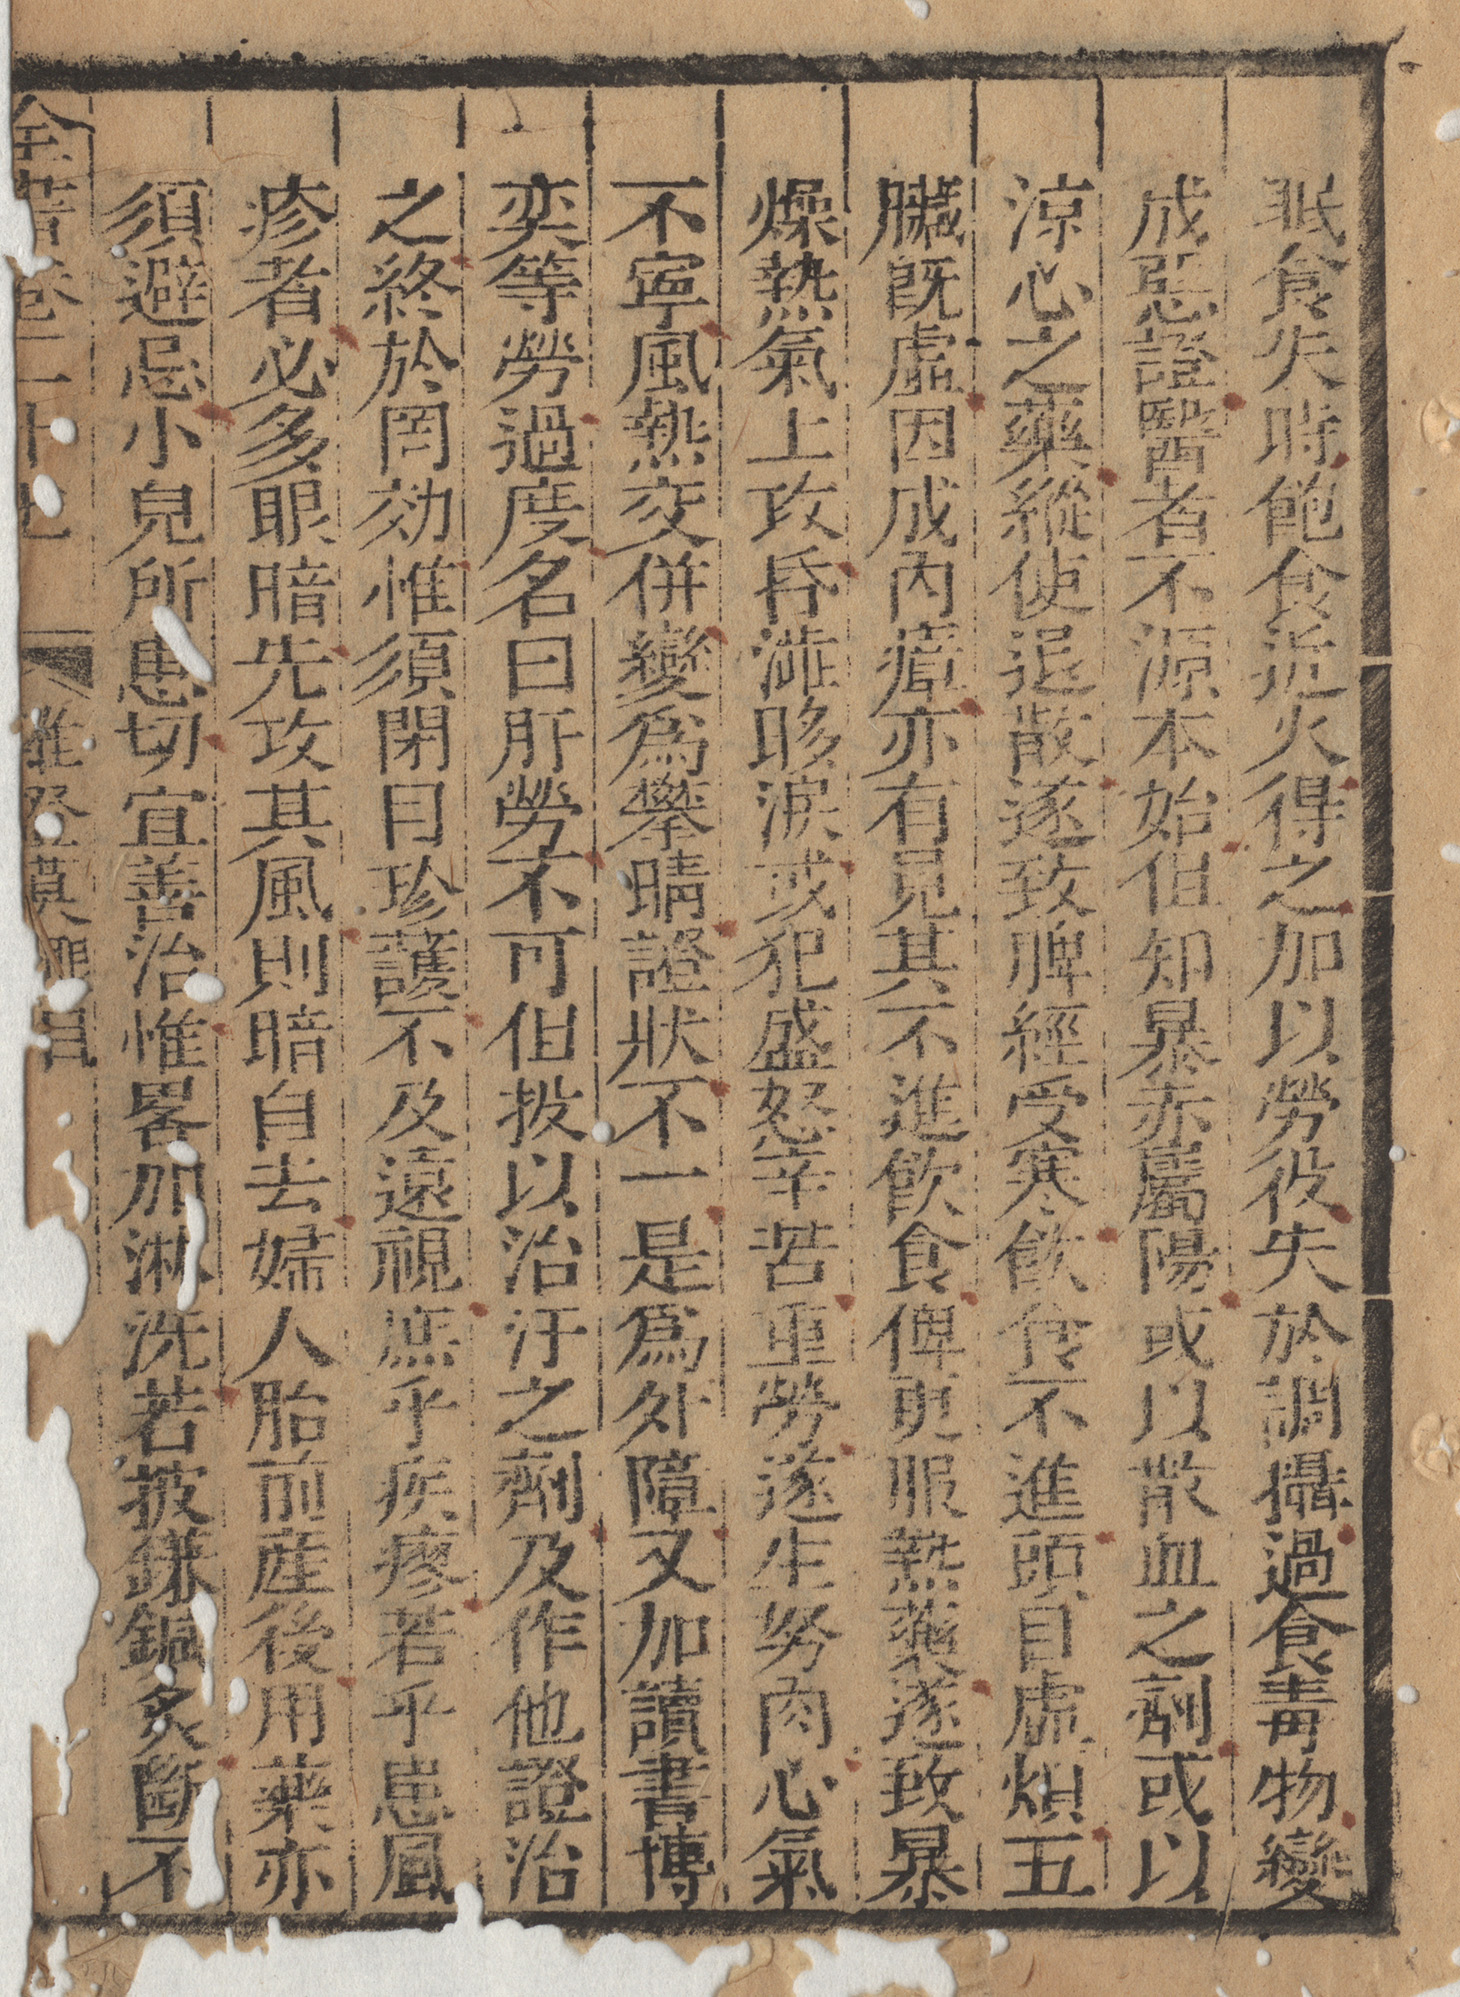 眠食失時飽食近火得之加以勞役失於調攝過食毒物變
成惡證醫者不源本始但知暴赤屬陽或以散血之劑或以
涼心之藥縱使退散遂致脾經受寒飲食不進頭目虛煩五
臟既虛因成內瘴亦有見其不進飲食俾更服熱藥遂致暴
燥熱氣上攻昏澁眵淚或犯盛怒辛苦重勞遂生努肉心氣
不寧風熱交併變爲攀睛證狀不一是爲外障又加讀書博
奕等勞過度名曰肝勞不可但投以治汙之劑及作他證治
之終於罔効惟須閉目珍護不及遠視庶乎疾瘳若乎患風
疹者必多眼暗先攻其風則暗自去婦人胎前產後用藥亦
須避忌小兒所患切宜善治惟畧加淋洗若披鎌針灸斷不
全書卷二十七 雜證謨 眼目